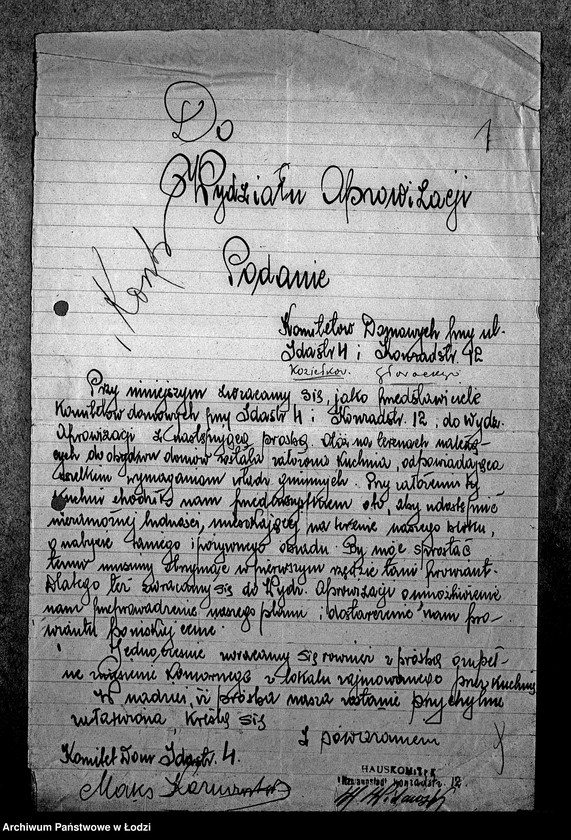 1
Do
Wydziału Aprowizacji
Podanie
Komitetów Domowych przy ul.
Idastr 4 i Konradstr. 12
Przy niniejszym zwracamy się, jako przedstawiciele
Komitetów domowych przy Idastr 4 i Konradstr. 12, do Wydz.
Aprowizacji z następującą prośbą. Otóż na terenach należą-
cych do obydwu domów została założona kuchnia, odpowiadająca
wszelkim wymaganiom władz gminnych. Przy założeniu tej
kuchni chodziło nam przedewszystkiem oto, aby udostępnić
niezamożnej ludności, mieszkającej na terenie naszego bloku,
nabycie taniego i pożywnego obiadu. By móc sprostać
temu musimy otrzymać w pierwszym rzędzie tani prowiant.
Dlatego też zwracamy się do Wydz. Aprowizacji o umożliwienie
nam przeprowadzenie naszego planu i dostarczenie nam pro-
wiantu po niskiej cenie.
Jednocześnie zwracamy się również z prośbą o zupeł-
ne zniesienie komornego z lokalu zajmowanego przez kuchnię
W nadziei, iż prośba nasza zostanie przychylnie
załatwiona, kreślą się
z poważaniem
Komitet Dom Idastr. 4.
HAUSKOMITEE
Konradstr. 12.
Archiwum Państwowe w Łodzi